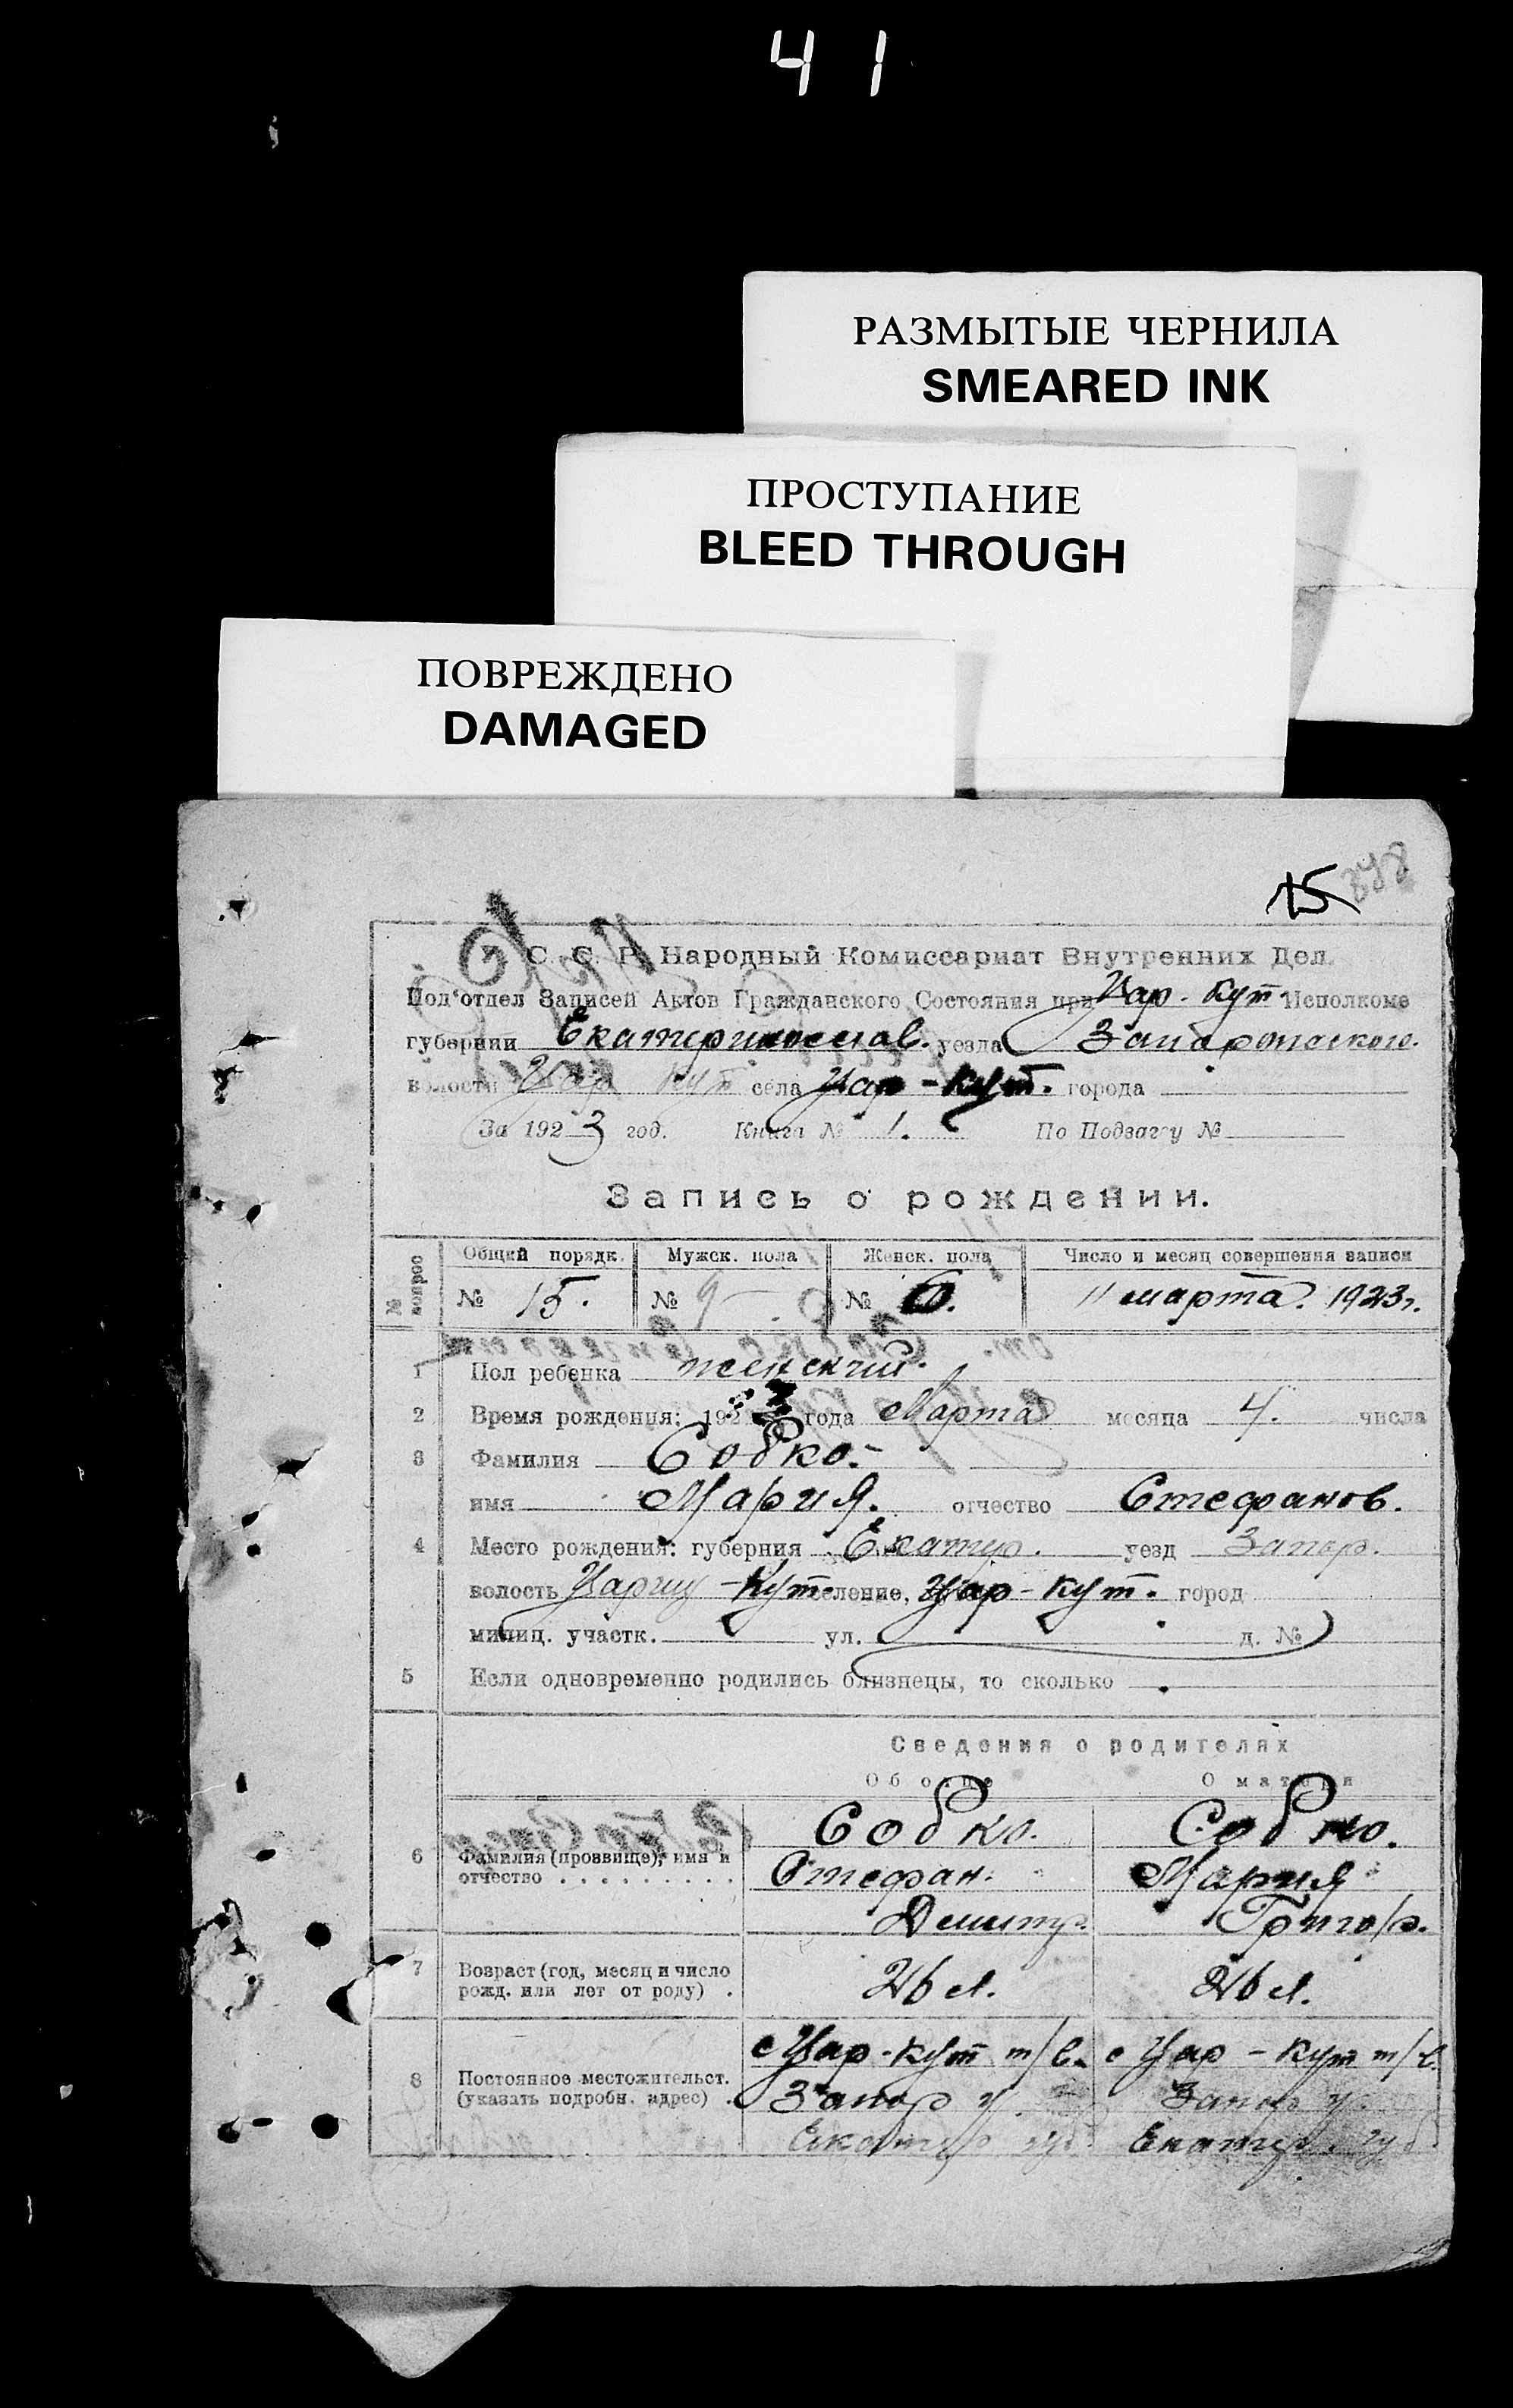 41
РАЗМЫТЫЕ ЧЕРНИЛА
SMEARED INK
ПРОСТУПАНИЕ
BLEED THROUGH
ПОВРЕЖДЕНО
DAMAGED
15 898
С. С. Р. Народный Комиссариат Внутренних Дел.
Под'отдел Записей Актов Гражданского Состояния при Цар.-Кут. Исполкоме
губернии Екатеринослав. уезда Запорожского.
волости Цар Кут села Цар-Кут. города
За 1923 год. Книга № 1. По Подзагсу №
Запись о рождении.
№ вопрос Общий порядк. Мужск. пола Женск. пола Число и месяц совершения записи
№ 15. № 9 — № 6. 11 марта. 1923 г.
1 Пол ребенка женский.
2 Время рождения: 1923 года Марта месяца 4. числа
3 Фамилия Собко.-
имя Мария. отчество Стефанов.
4 Место рождения: губерния Екатер. уезд Запор.
волость Цариц-Кут. селение, Цар-Кут. город
милиц. участк. ул. д. №
5 Если одновременно родились близнецы, то сколько
Сведения о родителях
Об отце О матери
Собко. Собко.
6 Фамилия (прозвище), имя и отчество Стефан. Мария
Дмитр. Григор.
7 Возраст (год, месяц и число рожд. или лет от роду) . 26 л. 26 л.
с Цар-Кут т/в. с Цар-Кут т/в.
8 Постоянное местожительст. (указать подробн. адрес) . Запор у. Запор у.
Екатер губ. Екатер. губ.